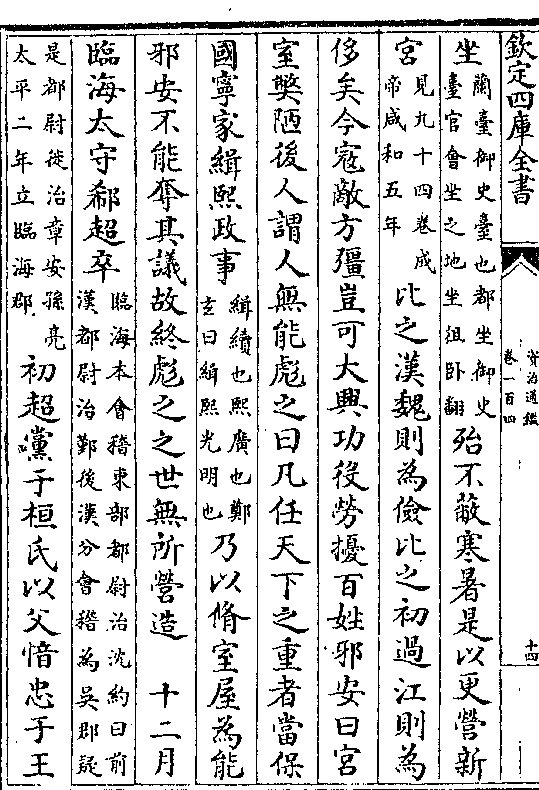 欽定四庫全書
資治通鑑
卷一百四
十四
坐蘭臺御史臺也都坐御史臺官會坐之地坐徂卧翻殆不蔽寒暑是以更營新
宮見九十四卷成帝咸和五年比之漢魏則為儉比之初過江則為
侈矣今寇敵方彊豈可大興功役勞擾百姓邪安曰宮
室獘陋後人謂人無能彪之曰凡任天下之重者當保
國寧家緝熙政事緝續也熙廣也鄭玄曰緝熙光明也乃以脩室屋為能
邪安不能奪其議故終彪之之世無所營造 十二月
臨海太守郗超卒臨海本會稽東部都尉治沈約曰前漢都尉治鄞後漢分會稽為吳郡疑
是都尉徙治章安孫亮太平二年立臨海郡初超黨于桓氏以父愔忠于王